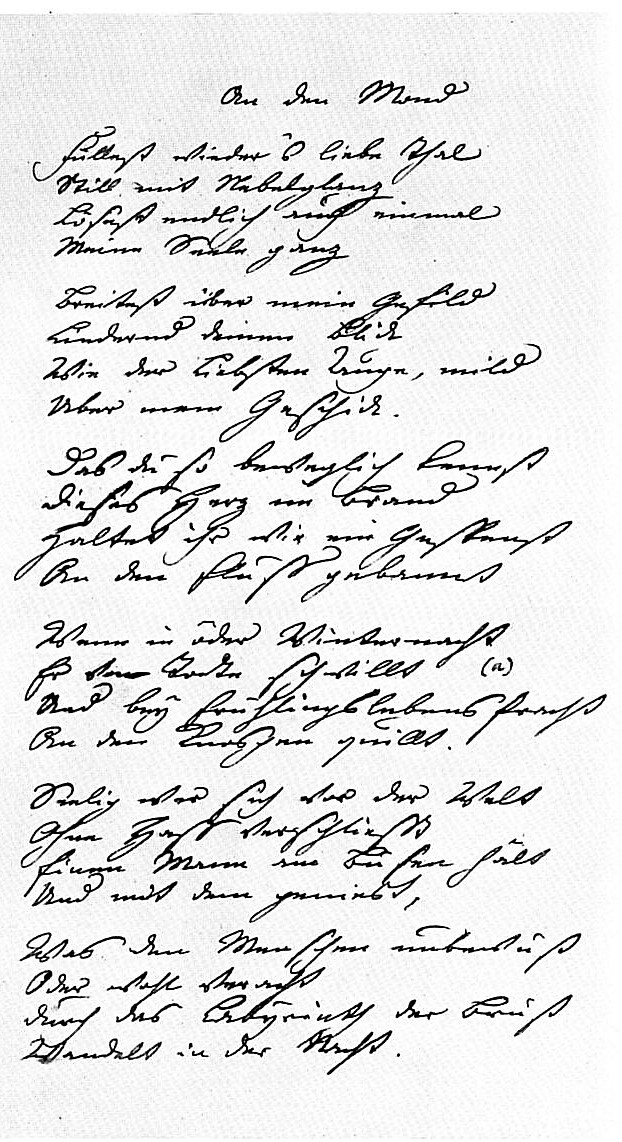 An den Mond
Füllest wieder's liebe Thal
Still mit Nebelglanz
Lösest endlich auch einmal
Meine Seele ganz
Breitest über mein Gefild
Lindernd deinen Blick
Wie der Liebsten Auge, mild
Über mein Geschick.
Das du so beweglich kennst
Dieses Herz im Brand
Haltet ihr wie ein Gespenst
An den Fluss gebannt
Wenn in öder Winternacht
Er vom Todte schwillt (a)
Und bey Frühlingslebens Pracht
An den Knospen quillt.
Seelig wer sich vor der Welt
Ohne Hass verschliesst
Einen Mann am Busen hält
Und mit dem geniest,
Was den Menschen unbewusst
Oder wohl veracht
durch das Labyrinth der Brust
Wandelt in der Nacht.